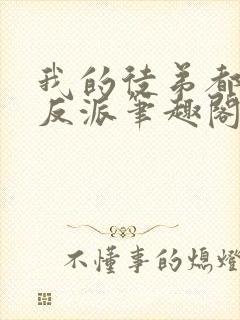 我的徒弟都
反派笔趣阁
不懂事的熄灯